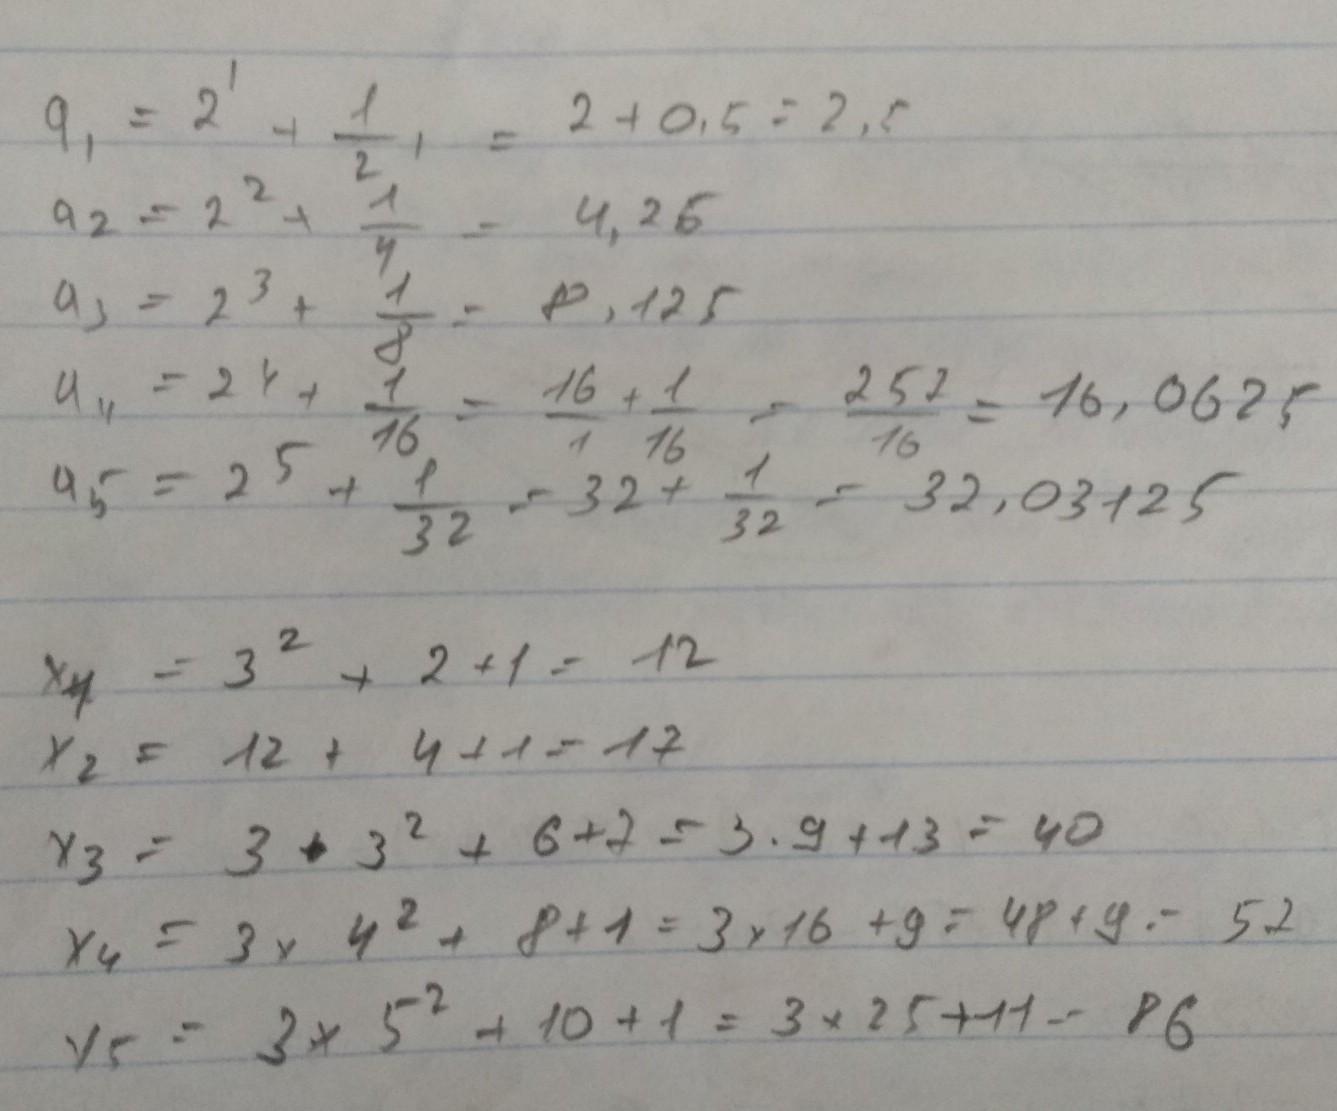 a₁ = 2¹ + 1/2¹ = 2 + 0,5 = 2,5
a₂ = 2² + 1/4 = 4,25
a₃ = 2³ + 1/8 = 8,125
a₄ = 2⁴ + 1/16 = 16/1 + 1/16 = 257/16 = 16,0625
a₅ = 2⁵ + 1/32 = 32 + 1/32 = 32,03125
x₁ = 3² + 2 + 1 = 12
x₂ = 12 + 4 + 1 = 17
x₃ = 3 · 3² + 6 + 7 = 3 . 9 + 13 = 40
x₄ = 3 × 4² + 8 + 1 = 3 × 16 + 9 = 48 + 9 = 57
x₅ = 3 × 5² + 10 + 1 = 3 × 25 + 11 = 86